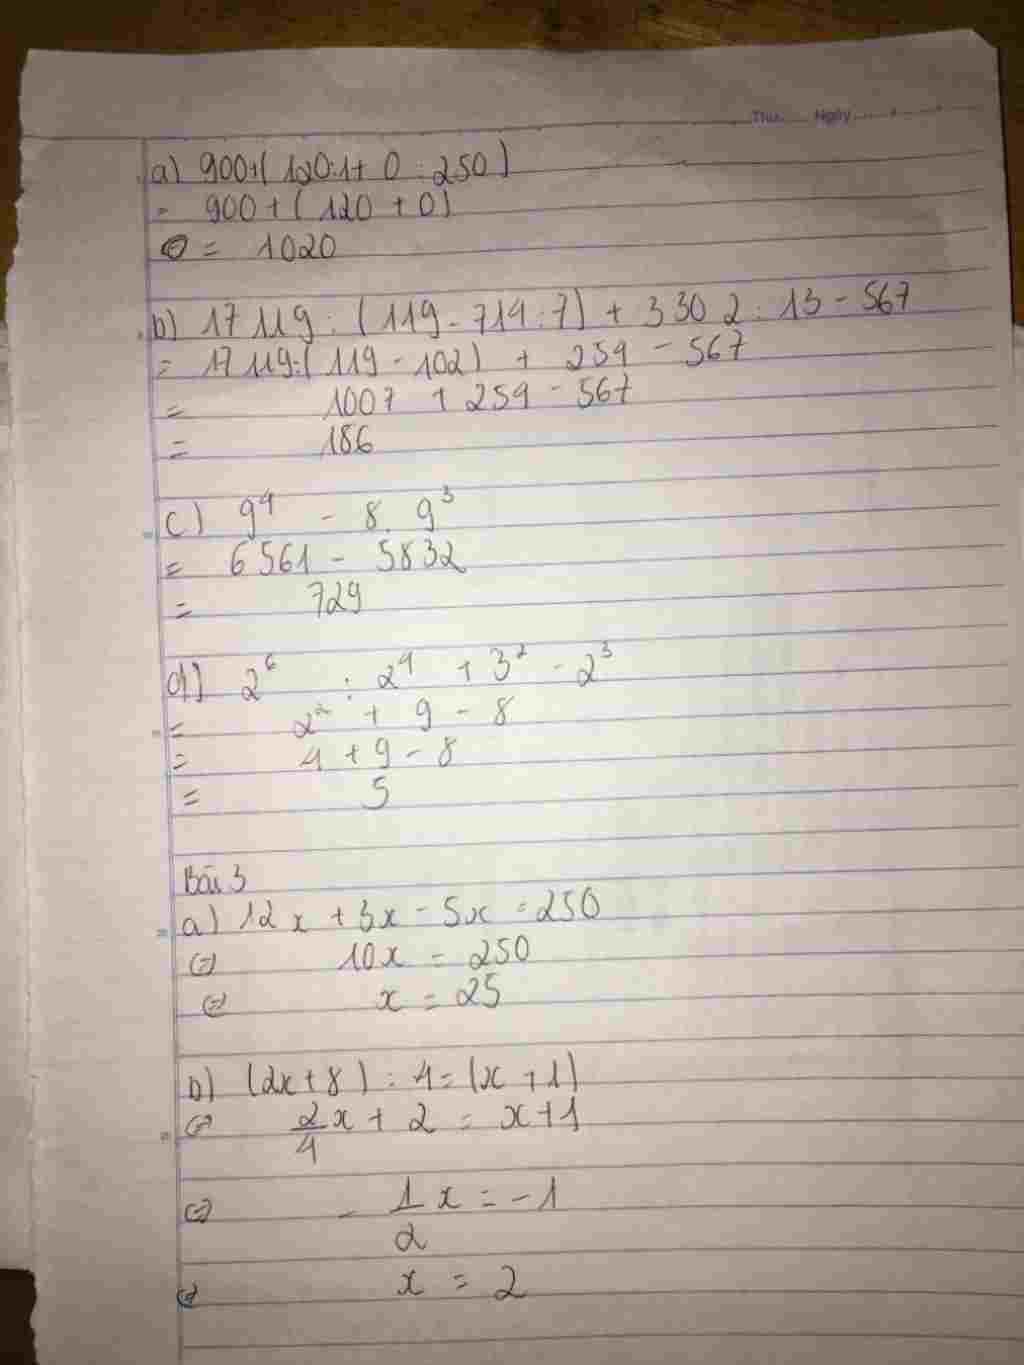 Thứ...... Ngày......../........
a) 900+(120:1+ 0 : 250)
= 900 + (120 + 0)
= 1020
b) 17 119 : (119 - 714 : 7) + 3 30 2 : 13 - 567
= 17 119:(119 - 102) + 254 - 567
= 1007 + 254 - 567
= 186
c) 9⁴ - 8. 9³
= 6 561 - 5832
= 729
d) 2⁶ : 2⁴ + 3² - 2³
= 2² + 9 - 8
= 4 + 9 - 8
= 5
Bài 3
a) 12x + 3x - 5x = 250
(=) 10x = 250
(=) x = 25
b) (2x + 8) : 4 = (x + 1)
(=) 2/4 x + 2 = x + 1
(=) - 1/2 x = - 1
(=) x = 2